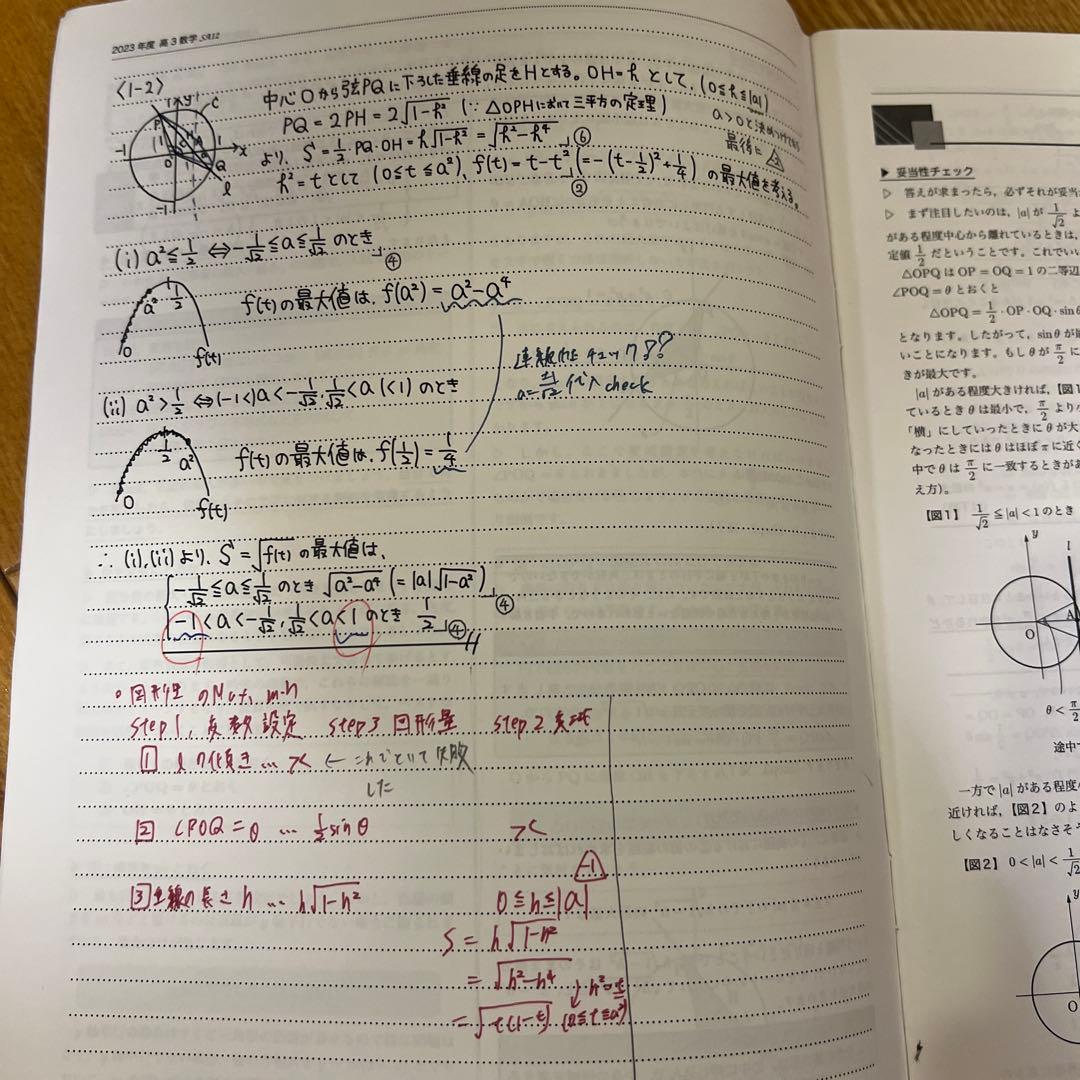 2023年度 高3数学 SA12
〈1-2〉
中心Oから弦PQに下ろした垂線の足をHとする。OH=hとして、(0≦h≦|a|)
PQ=2PH=2√(1-h²) (∵ △OPHにおいて三平方の定理)
a>0と決めつけ
より、S=1/2・PQ・OH=h√(1-h²)=√(h²-h⁴) ⑥
最後に
h²=tとして(0≦t≦a²)、f(t)=t-t² (=-(t-1/2)²+1/4) の最大値を考える。
②
y
C
P
H
-1
1
O
Q
x
l
-1
(i) a²≦1/2 ⇔ -1/√2≦a≦1/√2 のとき ④
f(t)の最大値は、f(a²)=a²-a⁴
a² 1/2
O f(t)
連続性チェック??
a=1/√2 代入 check
(ii) a²>1/2 ⇔ (-1<)a<-1/√2, 1/√2<a(<1) のとき
f(t)の最大値は、f(1/2)=1/4
1/2 a²
O f(t)
∴ (i),(ii)より、S=√f(t) の最大値は、
-1/√2≦a≦1/√2 のとき √(a²-a⁴) (=|a|√(1-a²)) ④
-1<a<-1/√2, 1/√2<a<1 のとき 1/2 ④
。図形量のMax, min
step1, 変数設定 step3 図形量 step2 変域
1 lの傾き…× ← これでといて失敗
した
2 ∠POQ=θ … 1/2 sinθ ×
-1
3 垂線の長さh … h√(1-h²) 0≦h≦|a|
S=h√(1-h²)
=√(h²-h⁴)
↓ h²=t
=√(t(1-t)) (0≦t≦a²)
▶ 妥当性チェック
▷ 答えが求まったら、必ずそれが妥当
▷ まず注目したいのは、|a|が 1/√2 よ
がある程度中心から離れているときは、
定値 1/2 だということです。これでい
△OPQはOP=OQ=1の二等辺
∠POQ=θとおくと
△OPQ=1/2・OP・OQ・sinθ
となります。したがって、sinθが最
いことになります。もしθが π/2 に
きが最大です。
|a|がある程度大きければ、【図1
ているときθは最小で、π/2 より
「横」にしていったときにθが大
なったときにはθはほぼπに近く
中でθは π/2 に一致するときがあ
え方)。
【図1】 1/√2≦|a|<1のとき
y
l
O
A
θ<π/2
途中で
一方で|a|がある程度
近ければ、【図2】のよ
しくなることはなさそう
【図2】 0<|a|<1/√2
y
O